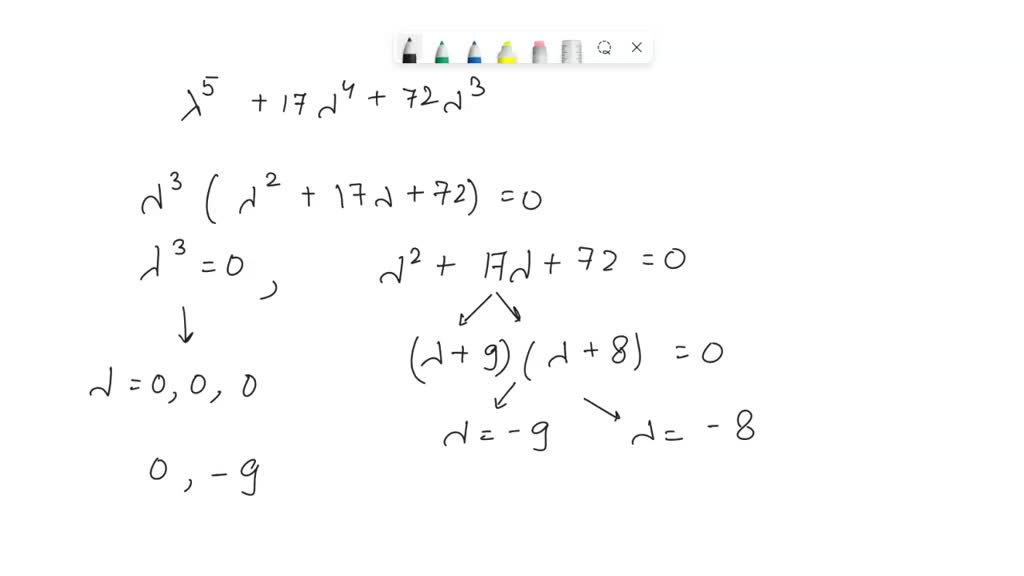 λ⁵ + 17λ⁴ + 72λ³
λ³ ( λ² + 17λ + 72) = 0
λ³ = 0 , λ² + 17λ + 72 = 0
(λ + 9) ( λ + 8) = 0
λ = 0, 0, 0
λ = - 9 λ = - 8
0 , - 9